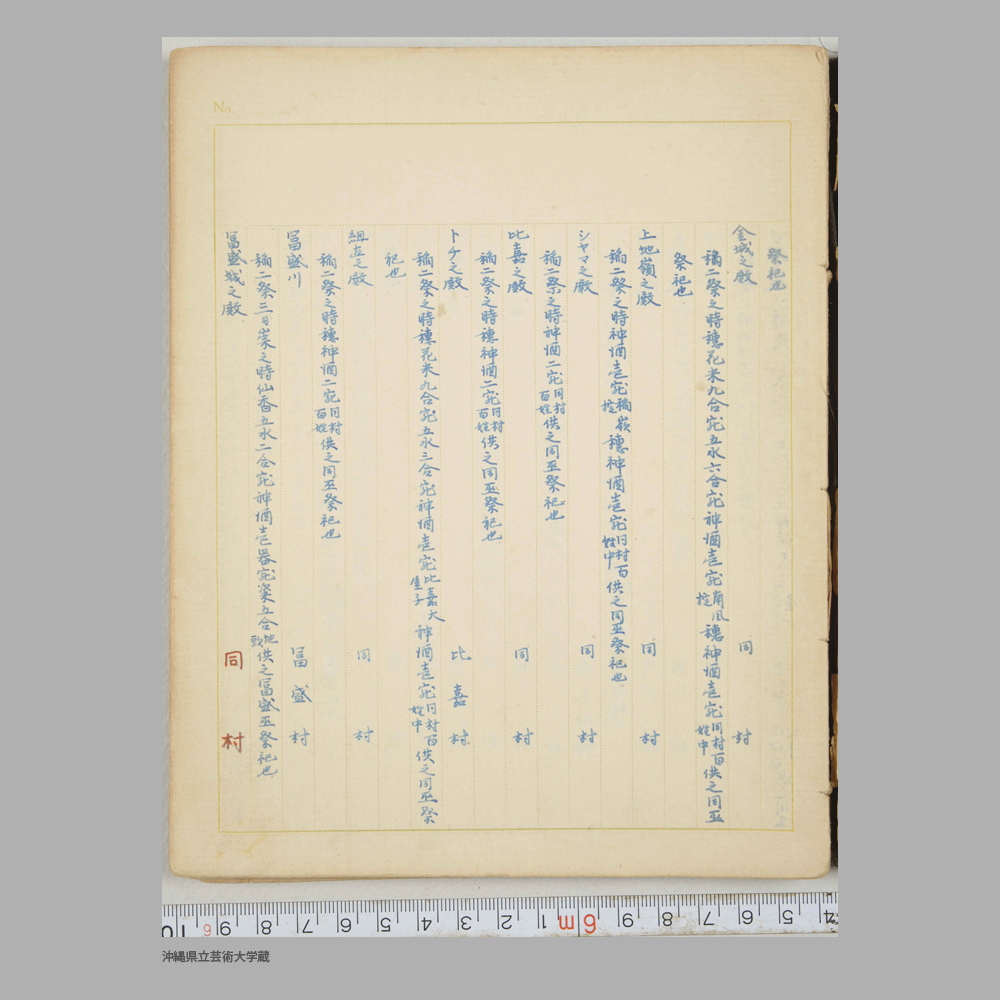 No.
祭祀也
金城之殿 同村
稲二祭之時穗花米九合宛五水六合宛神酒壱宛南風掟穗神酒壱宛同村百姓中供之同巫
祭祀也
上地嶺之殿 同村
稲二祭之時神酒壱宛稲嶺掟穗神酒壱宛同村百姓中供之同巫祭祀也
シヤマ之殿 同村
稲二祭之時神酒二宛同村百姓供之同巫祭祀也
比嘉之殿 同村
稲二祭之時穗神酒二宛同村百姓供之同巫祭祀也
トチ之殿 比嘉村
稲二祭之時穗花米九合宛五水三合宛神酒壱宛比嘉大屋子神酒壱宛同村百姓中供之同巫祭
祀也
之殿 同村
稲二祭之時穗神酒二宛同村百姓供之同巫祭祀也
冨盛川 冨盛村
稲二祭三日崇之時仙香五水二合宛神酒壱器宛粢五合地頭供之冨盛巫祭祀也
冨盛城之殿 同村
沖縄県立芸術大学蔵